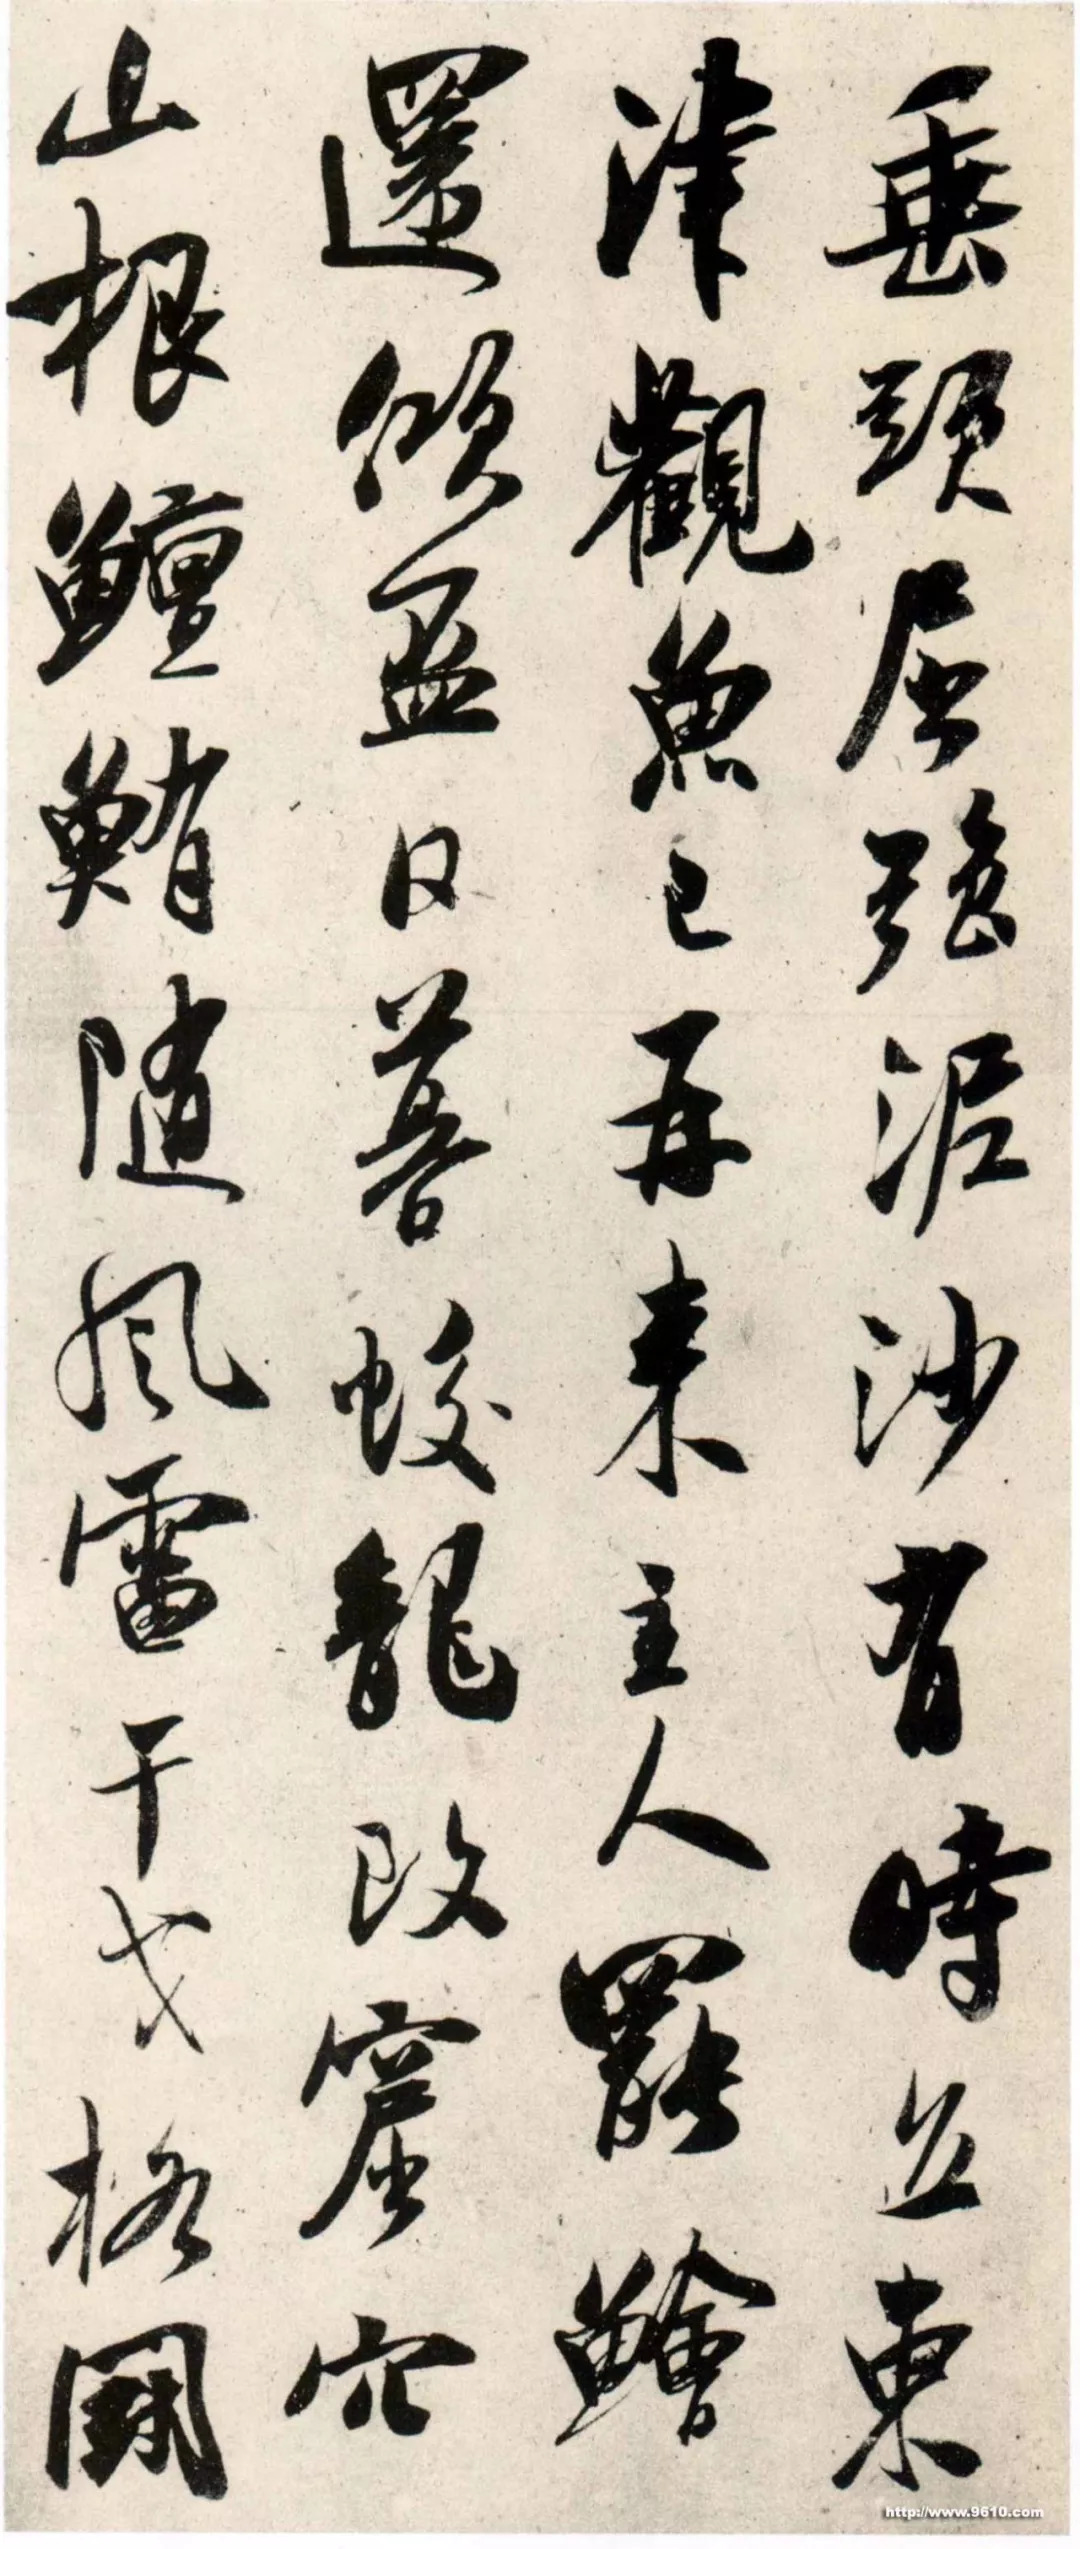 垂頭屈強泥沙有時立東
津觀魚已再來主人罷鱠
還傾盃日暮蛟龍改窟穴
山根鱣鮪隨風雷干戈格鬪
http://www.9610.com